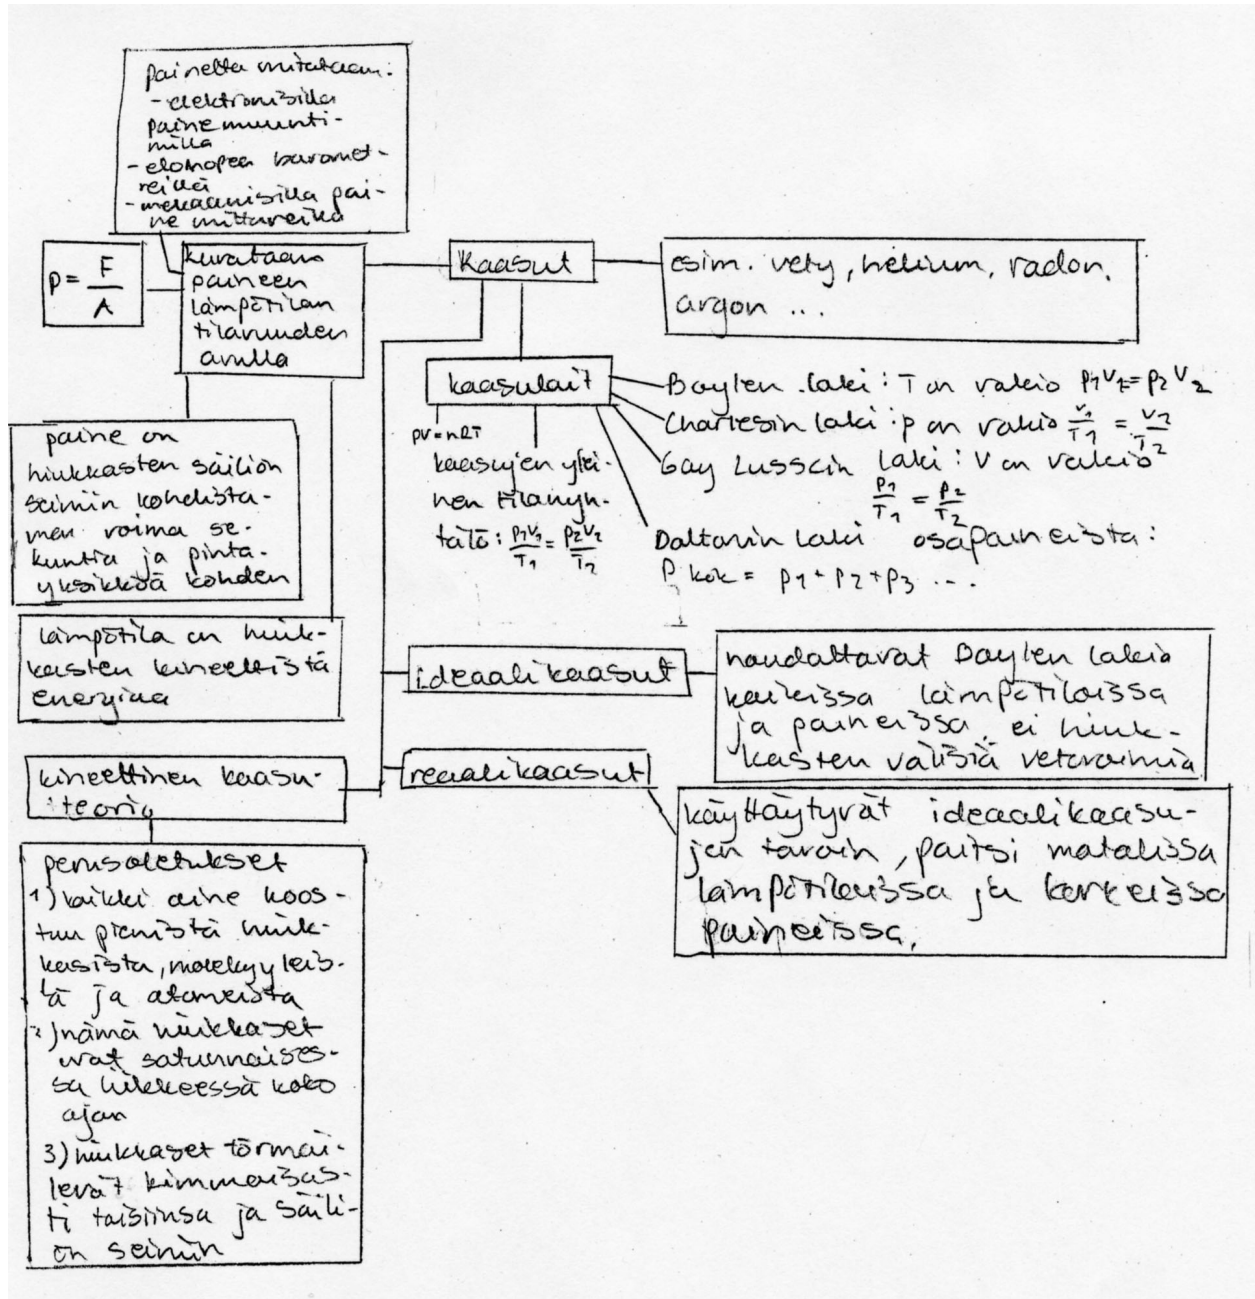 painetta mitataan:
- elektronisilla
painemuunti-
milla
- elohopea baromet-
reillä
- mekaanisilla pai-
ne mittareilla
p = F/A
kuvataan
paineen
lämpötilan
tilavuuden
avulla
Kaasut
esim. vety, helium, radon,
argon ...
kaasulait
Boylen laki: T on vakio p1V1=p2V2
Charlesin laki: p on vakio V1/T1 = V2/T2
Gay Lussacin laki: V on vakio
p1/T1 = p2/T2
Daltonin laki osapaineista:
P kok = p1+p2+p3 ...
pV=nRT
kaasujen ylei-
nen tilanyh-
tälö: p1V1/T1 = p2V2/T2
paine on
hiukkasten säiliön
seiniin kohdista-
man voima se-
kuntia ja pinta-
yksikköä kohden
lämpötila on hiuk-
kasten kineettistä
energiaa
ideaalikaasut
noudattavat Boylen lakia
kaikissa lämpötiloissa
ja paineissa, ei hiuk-
kasten välisiä vetovoimia
reaalikaasut
käyttäytyvät ideaalikaasu-
jen tavoin, paitsi matalissa
lämpötiloissa ja korkeissa
paineissa,
kineettinen kaasu-
teoria
perusoletukset
1) kaikki aine koos-
tuu pienistä hiuk-
kasista, molekyyleis-
tä ja atomeista
2) nämä hiukkaset
ovat satunnaises-
sa liikkeessä koko
ajan
3) hiukkaset törmäi-
levät kimmoisas-
ti toisiinsa ja säili-
ön seiniin